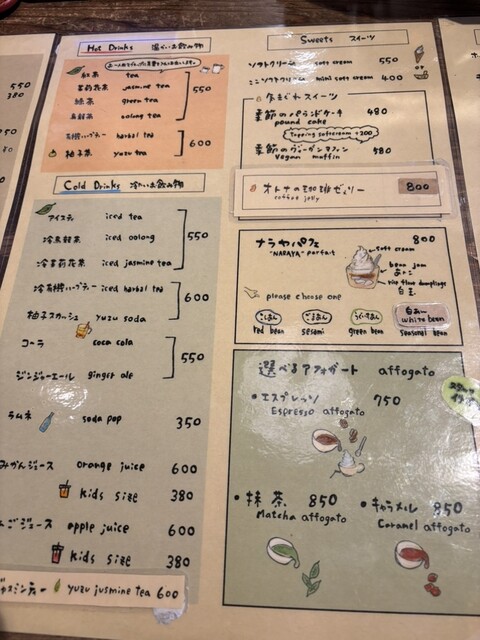 Hot Drinks 温かいお飲み物
紅茶 tea
茉莉花茶 jasmine tea
緑茶 green tea
烏龍茶 oolong tea
550
有機ハーブティー herbal tea
柚子茶 yuzu tea
600
Cold Drinks 冷たいお飲み物
アイスティ iced tea
冷烏龍茶 iced oolong
冷茉莉花茶 iced jasmine tea
550
冷有機ハーブティー iced herbal tea
柚子スカッシュ yuzu soda
600
コーラ coca cola
ジンジャーエール ginger ale
550
ラムネ soda pop 350
みかんジュース orange juice 600
kids size 380
ごジュース apple juice 600
kids size 380
yuzu jusmine tea 600
550
380
Sweets スイーツ
ソフトクリーム soft cream 550
ミニソフトクリーム mini soft cream 400
季節のパウンドケーキ 480
pound cake
Topping softcream +200
季節のヴィーガンマフィン 580
Vegan muffin
オトナの珈琲ゼリー 800
coffee jelly
ナラヤパフェ 800
"NARAYA" parfait
soft cream
bean jam
あんこ
rice flour dumplings
白玉
please choose one
こしあん
ごまあん
うぐいすあん
白あん
white bean
red bean
sesami
green bean
seasonal bean
選べるアフォガート affogato
エスプレッソ 750
Espresso affogato
抹茶 850
Matcha affogato
キャラメル 850
Caramel affogato